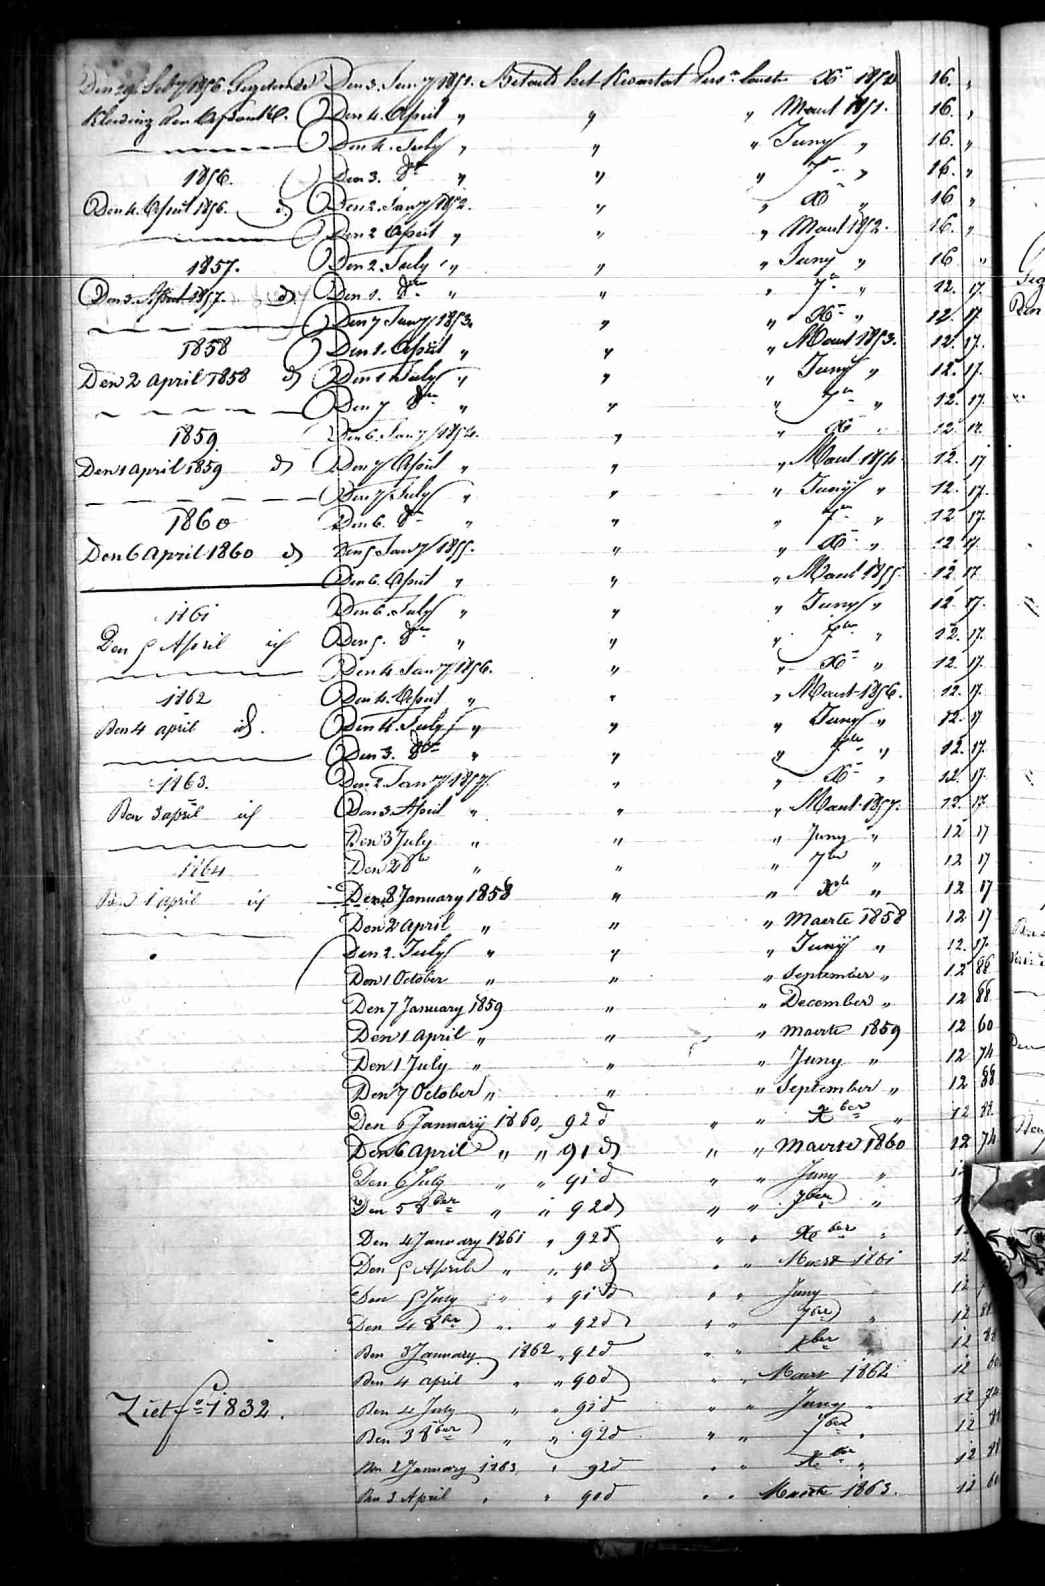 Den 29 Feb 1856 Den 3 Jany 1851. Betaald het Kwartaal Xr 1850 16. "
Kleeding Den 4 April " " " Maart 1851. 16. "
Den 4. July " " " Juny " 16. "
1856. Den 3. 8r " " " 7r " 16. "
Den 4. April 1856. id Den 2. Jany 1852. " " Xr " 16 "
Den 2 April " " " Maart 1852. 16. "
1857. Den 2. July " " " Juny " 16 "
Den 3. April 1857. id Den 1. 8r " " " 7r " 12. 17.
Den 7 Jany 1853. " " Xr " 12. 17
1858 Den 1. April " " " Maart 1853. 12. 17.
Den 2 April 1858 id Den 1 July " " " Juny " 12. 17.
Den 7 8r " " " 7r " 12. 17.
1859 Den 6. Jany 1854. " " Xr " 12. 17.
Den 1 April 1859 id Den 7 April " " " Maart 1854. 12. 17
Den 7 July " " " Juny " 12. 17.
1860 Den 6. 8r " " " 7r " 12 17.
Den 6 April 1860 id Den 5 Jany 1855. " " Xr " 12 17
Den 6. April " " " Maart 1855 12 17
1861 Den 6. July " " " Juny " 12 17.
Den 5 April id Den 5. 8r " " " 7ber " 12. 17.
Den 4 Jany 1856. " " Xr " 12 17.
1862 Den 4. April " " " Maart 1856. 12. 17.
Den 4 april id. Den 4. July " " " Juny " 12. 17
Den 3. 8ber " " " 7ber " 12. 17.
1863. Den 2 Jany 1857. " " Xr " 12. 17.
Den 3 april id Den 3. April " " " Maart 1857. 12. 17.
Den 3 July " " " Juny " 12 17
1864 Den 2 8br " " " 7br " 12 17
Den 1 april id Den 8 January 1858 " " Xbr " 12 17
Den 2 April " " " Maerte 1858 12 17
Den 2. July " " " Juny " 12. 17.
Den 1 October " " " September " 12 88
Den 7 January 1859 " " December " 12 88
Den 1 April " " " Maerte 1859 12 60
Den 1 July " " " Juny " 12 74
Den 7 October " " " September " 12 88
Den 6 January 1860, 92 d " " Xber " 12 88
Den 6 April " " 91 d " " Maerte 1860 12 74
Den 6 July " " 91 d " " Juny "
Den 5 8ber " " 92 d " " 7ber "
Den 4 January 1861 " 92 d " " Xber "
Den 5 April " " 90 d " " Maert 1861 12
Den 5 July " " 91 d " " Juny 12
Den 4 8ber " " 92 d " " 7ber 12
Den 3 January 1862 " 92 d " " Xber 12 88
Den 4 april " " 90 d " " Maert 1862 12 60
Ziet fo 1832. Den 4 July " " 91 d " " Juny " 12 74
Den 3 8ber " " 92 d " " 7ber " 12 88
Den 2 January 1863, " 92 d " " Xber " 12 88
Den 3 April " " 90 d " " Maerte 1863. 12 60